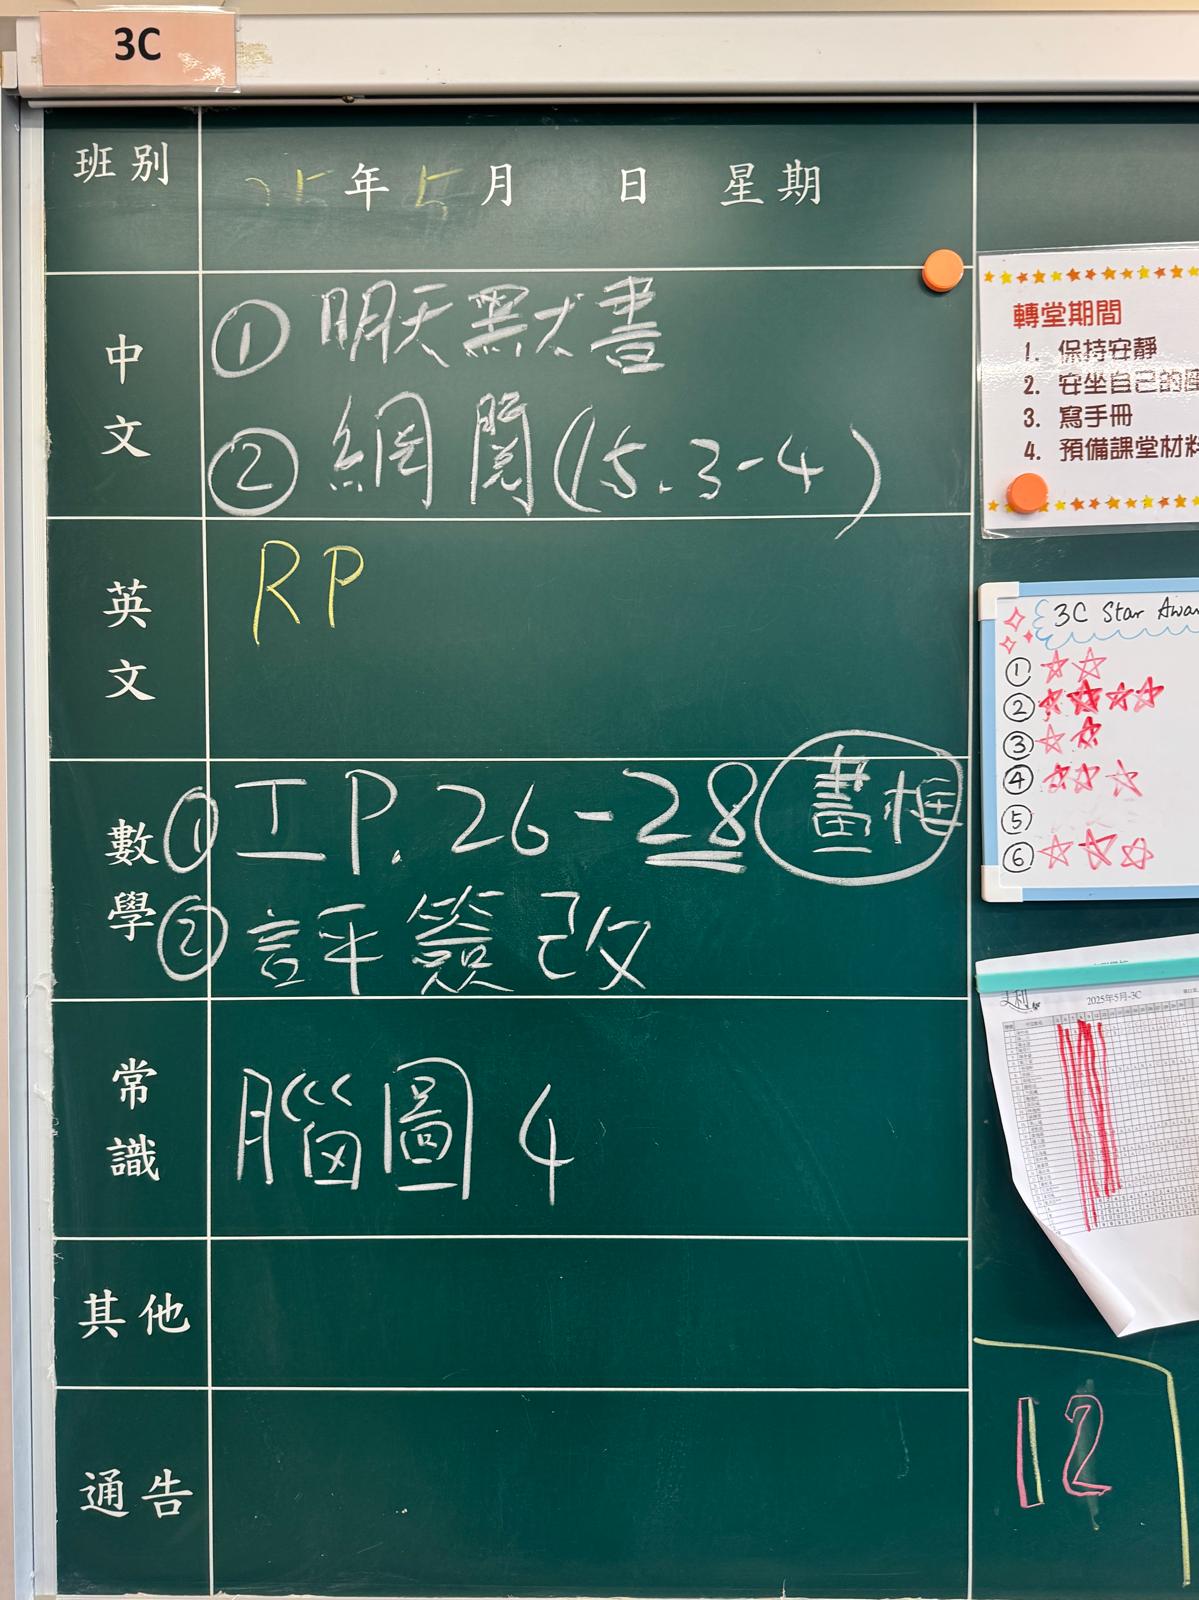 3C
班別
25年5月 日 星期
中文
① 明天默書
② 網閱(15.3-4)
英文
RP
數學
① 工 P. 26-28 畫框
② 評簽改
常識
腦圖 4
其他
通告
轉堂期間
1. 保持安靜
2. 安坐自己的
3. 寫手冊
4. 預備課堂材料
3C Star Awar
①
②
③
④
⑤
⑥
2025年5月-3C
12